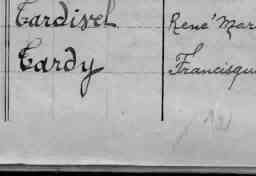 Tardivel René Mar
Tardy Francisqu